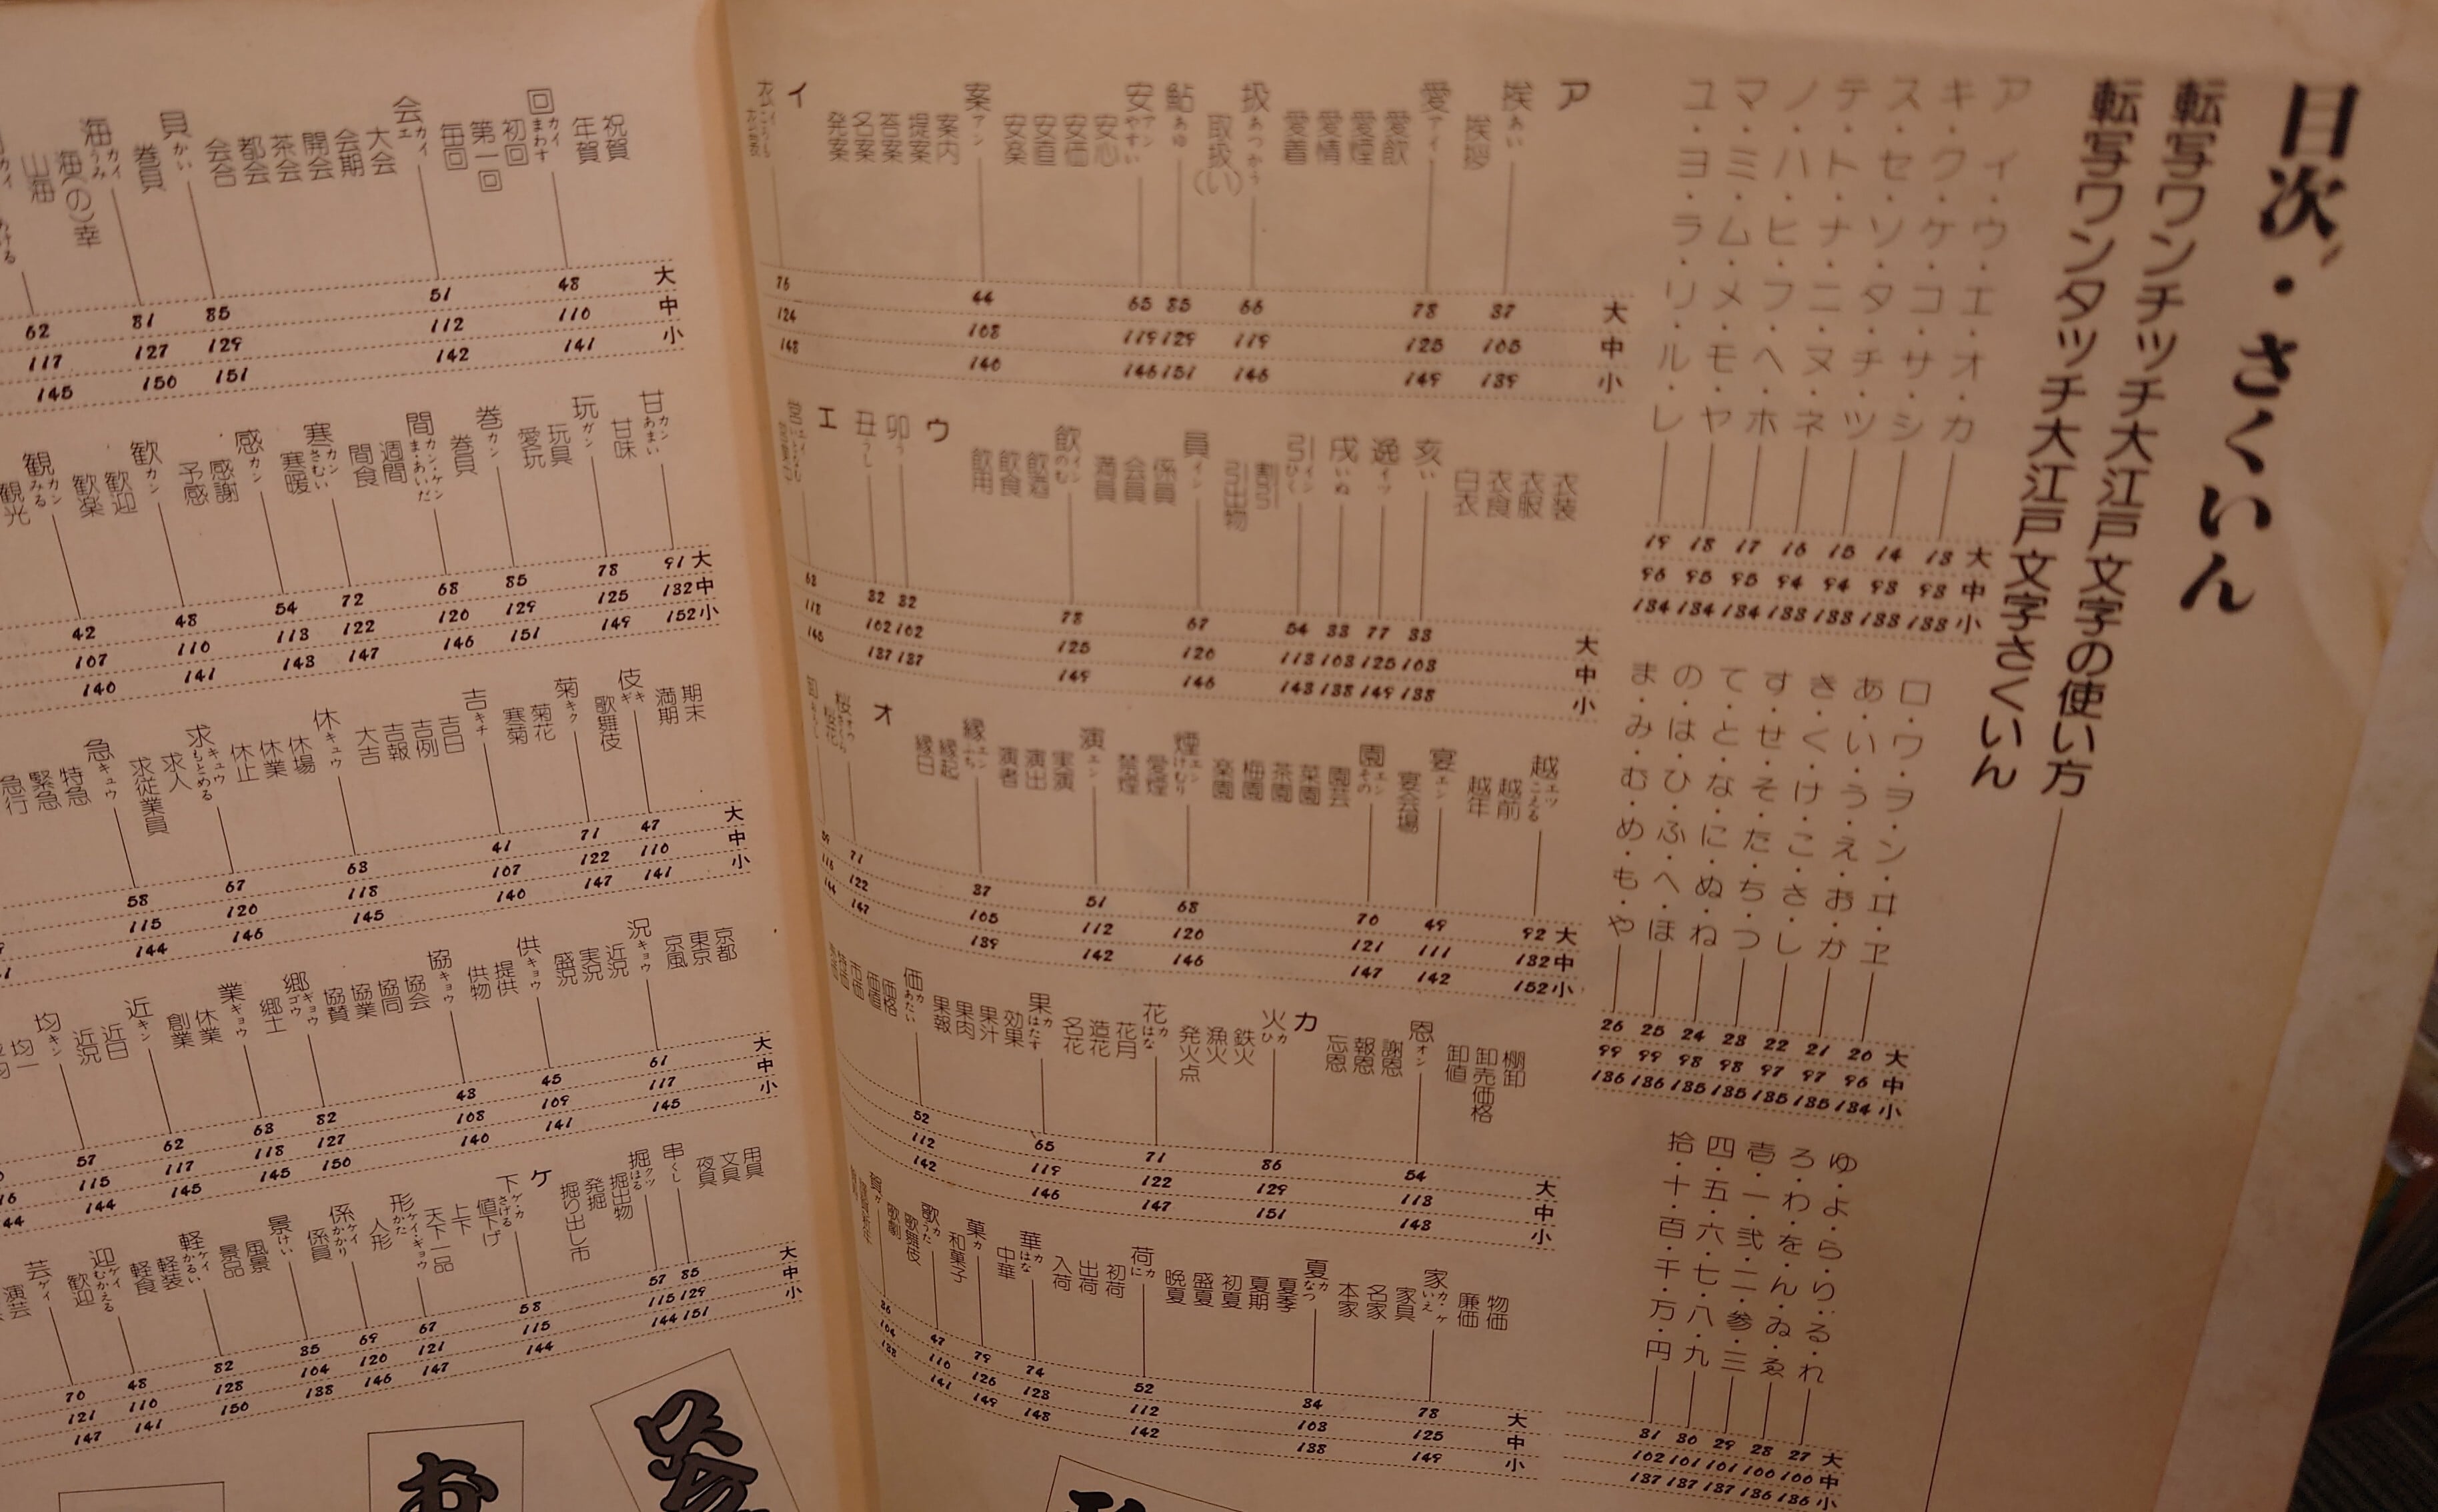 目次・さくいん
転写ワンチッチ大江戸文字の使い方
転写ワンタッチ大江戸文字さくいん
大 中 小
ア・イ・ウ・エ・オ・カ 13 93 133
キ・ク・ケ・コ・サ・シ 14 93 133
ス・セ・ソ・タ・チ・ツ 15 94 133
テ・ト・ナ・ニ・ヌ・ネ 16 94 133
ノ・ハ・ヒ・フ・ヘ・ホ 17 95 134
マ・ミ・ム・メ・モ・ヤ 18 95 134
ユ・ヨ・ラ・リ・ル・レ 19 96 134
大 中 小
ロ・ワ・ヲ・ン・ヰ・ヱ 20 96 134
あ・い・う・え・お・か 21 97 135
き・く・け・こ・さ・し 22 97 135
す・せ・そ・た・ち・つ 23 98 135
て・と・な・に・ぬ・ね 24 98 135
の・は・ひ・ふ・へ・ほ 25 99 136
ま・み・む・め・も・や 26 99 136
大 中 小
ゆ・よ・ら・り・る・れ 27 100 136
ろ・わ・を・ん・ゐ・ゑ 28 100 136
壱・一・弐・二・参・三 29 101 137
四・五・六・七・八・九 30 101 137
拾・十・百・千・万・円 31 102 137
ア
大 中 小
挨 あい 37 105 139
挨拶
愛 アイ 78 125 149
愛飲
愛煙
愛情
愛着
扱 あつかう 66 119 146
取扱(い)
鮎 あゆ 85 129 151
安 アン やすい 65 119 146
安心
安価
安直
安楽
案 アン 44 108 140
案内
提案
答案
名案
発案
イ
衣 76 124 148
大 中 小
衣装
衣服
衣食
白衣
亥 い 33 103 138
逸 イツ 77 125 149
戌 いぬ 33 103 138
引 イン ひく 54 113 143
割引
引出物
員 イン 67 120 146
係員
会員
満員
飲 イン のむ 78 125 149
飲酒
飲食
飲用
ウ
卯 う 32 102 137
丑 うし 32 102 137
エ
62 118 145
大 中 小
越 エツ こえる 92 132 152
越前
越年
宴 エン 49 111 142
宴会場
園 エン その 70 121 147
園芸
菜園
茶園
梅園
楽園
煙 エン けむり 68 120 146
愛煙
禁煙
演 エン 51 112 142
実演
演出
演者
縁 エン ふち 37 105 139
縁起
縁日
オ
71 122 147
59 116 144
大 中 小
棚卸
卸売価格
卸値
恩 オン 54 113 143
謝恩
報恩
忘恩
カ
火 カ ひ 86 129 151
鉄火
漁火
発火点
花 カ はな 71 122 147
花月
造花
名花
果 カ はたす 65 119 146
効果
果汁
果肉
果報
価 カ あたい 52 112 142
価格
価値
市価
大 中 小
物価
廉価
家 カ・ケ いえ 78 125 149
家具
名家
本家
夏 カ なつ 34 103 138
夏季
夏期
初夏
盛夏
晩夏
荷 カ に 52 112 142
初荷
出荷
入荷
華 カ はな 74 123 148
中華
菓 カ 79 126 149
和菓子
歌 カ うた 47 110 141
歌舞伎
歌劇
36 104 138
大 中 小
祝賀
年賀
回 カイ まわす 48 110 141
初回
第一回
毎回
会 カイ エ 51 112 142
大会
会期
開会
茶会
都会
会合
貝 かい 85 129 151
巻貝
海 カイ うみ 81 127 150
海(の)幸
山海
62 117 145
大 中 小
甘 カン あまい 91 132 152
甘味
玩 ガン 78 125 149
玩具
愛玩
巻 カン 85 129 151
巻貝
間 カン・ケン ま・あいだ 68 120 146
週間
間食
寒 カン さむい 72 122 147
寒暖
感 カン 54 113 143
感謝
予感
歓 カン 48 110 141
歓迎
歓楽
観 カン みる 42 107 140
観光
大 中 小
期末
満期
伎 ギ キ 47 110 141
歌舞伎
菊 キク 71 122 147
菊花
寒菊
吉 キチ 41 107 140
吉日
吉例
吉報
大吉
休 キュウ 63 118 145
休場
休業
休止
求 キュウ もとめる 67 120 146
求人
求従業員
急 キュウ 58 115 144
特急
緊急
急行
大 中 小
京都
東京
京風
況 キョウ 61 117 145
近況
実況
盛況
供 キョウ 45 109 141
提供
供物
協 キョウ 43 108 140
協会
協同
協業
協賛
郷 ギョウ ゴウ 82 127 150
郷土
業 ギョウ 63 118 145
休業
創業
近 キン 62 117 145
近日
近況
均 キン 57 115 144
均一
大 中 小
用具
文具
夜具
串 くし 85 129 151
掘 クツ はる 57 115 144
掘出物
発掘
掘り出し市
ケ
下 ゲ・カ さげる 58 115 144
値下げ
上下
天下一品
形 ケイ・ギョウ かた 67 121 147
人形
係 ケイ かかり 69 120 146
係員
景 けい 35 104 138
風景
景品
軽 ケイ かるい 82 128 150
軽装
軽食
迎 ゲイ むかえる 48 110 141
歓迎
芸 ゲイ 70 121 147
演芸